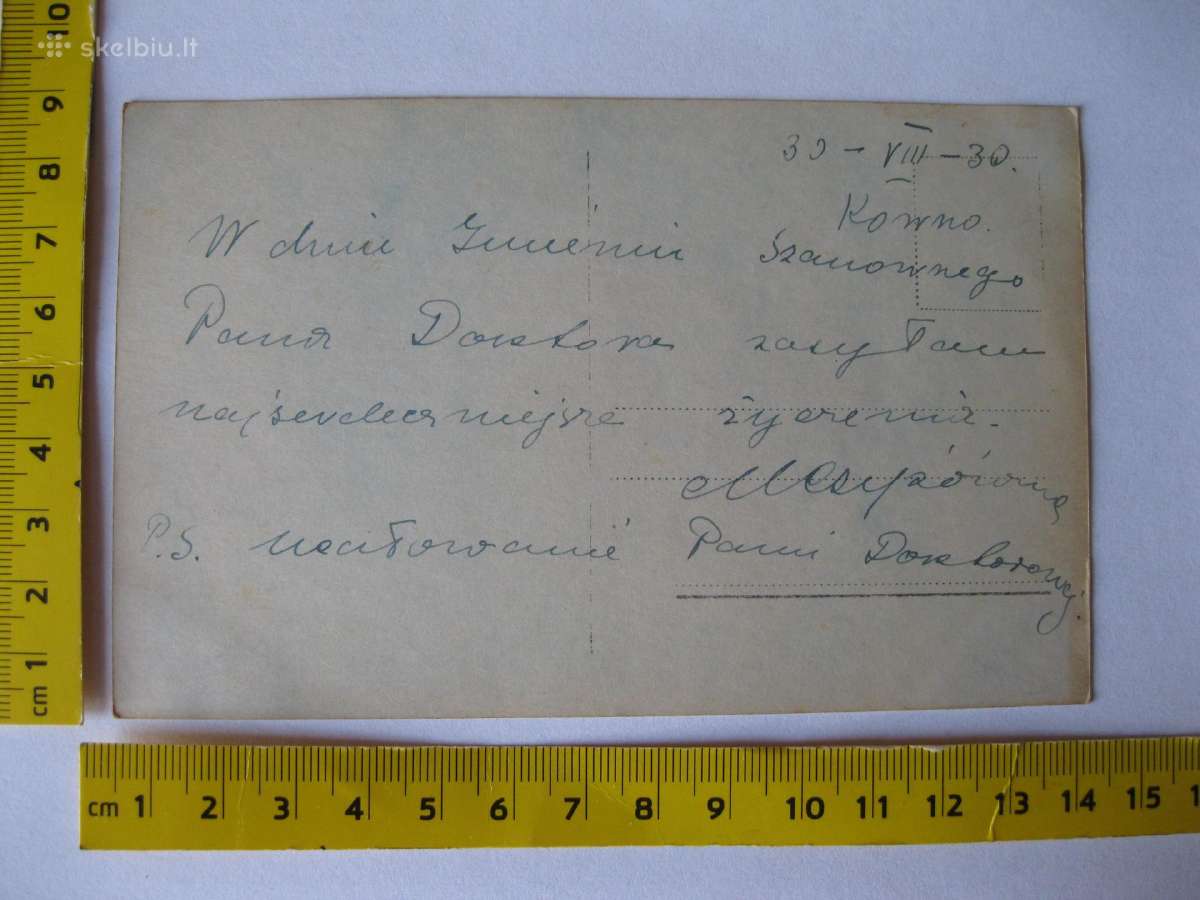 skelbiu.lt
30 - VIII - 30.
Kowno.
W dniu Imienin Szanownego
Pana Doktora zasyłam
najserdeczniejsze życzenia.
P.S. Pani Doktorowej.
10
9
8
7
6
5
4
3
2
1
cm
cm 1 2 3 4 5 6 7 8 9 10 11 12 13 14 15